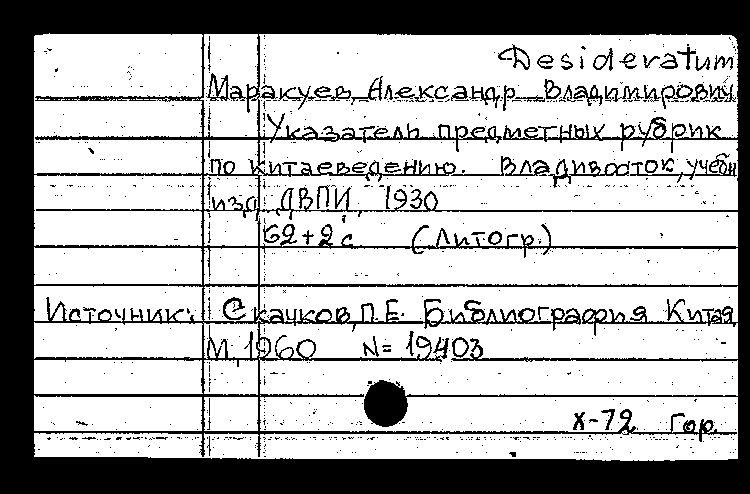 Desideratum
Маракуев, Александр Владимирович
Указатель предметных рубрик
по китаеведению. Владивосток, учебн
изд ДВПИ, 1930
62+2 с (Литогр.)
Источник: Скачков, П.Е. Библиография Китая,
М, 1960 N= 19403
X-72 Гор.